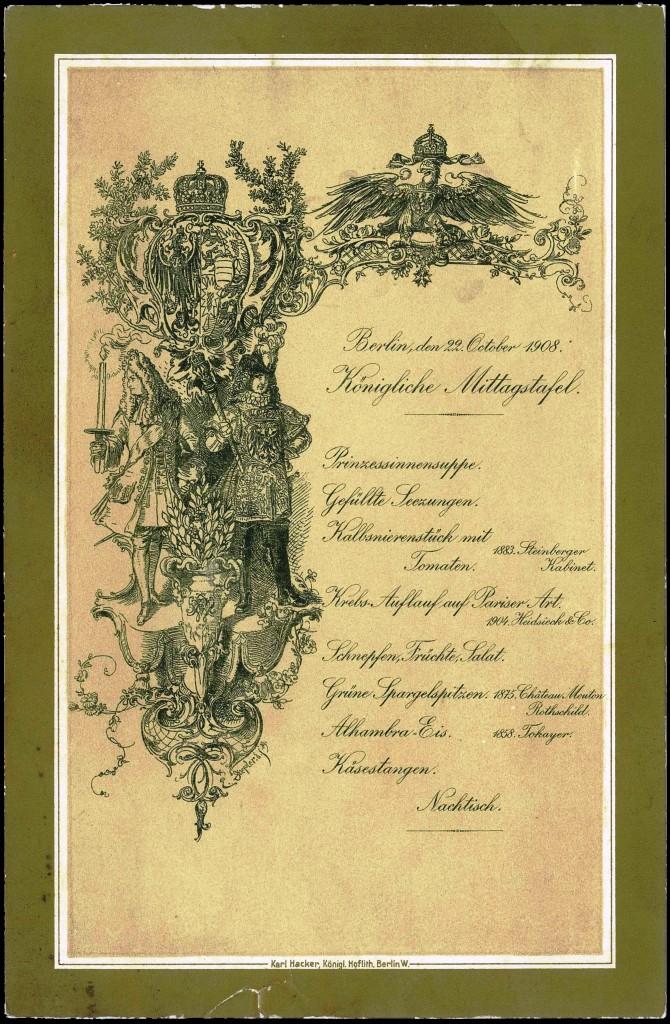 Berlin, den 22. October 1908.
Königliche Mittagstafel.
Prinzessinnensuppe.
Gefüllte Seezungen.
Kalbsnierenstück mit
Tomaten.
1883. Steinberger
Kabinet.
Krebs-Auflauf auf Pariser Art.
1904. Heidsieck & Co.
Schnepfen, Früchte, Salat.
Grüne Spargelspitzen. 1875. Château Mouton
Rothschild.
Alhambra-Eis. 1858. Tokayer.
Käsestangen.
Nachtisch.
Karl Hacker, Königl. Hoflith. Berlin W.